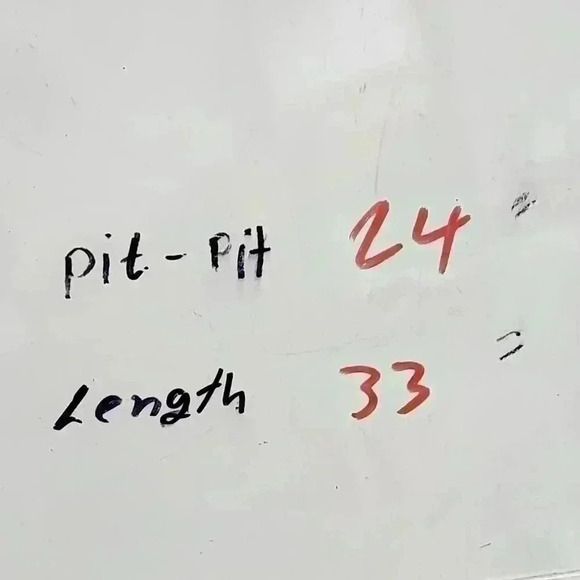 pit - Pit 24"
Length 33"